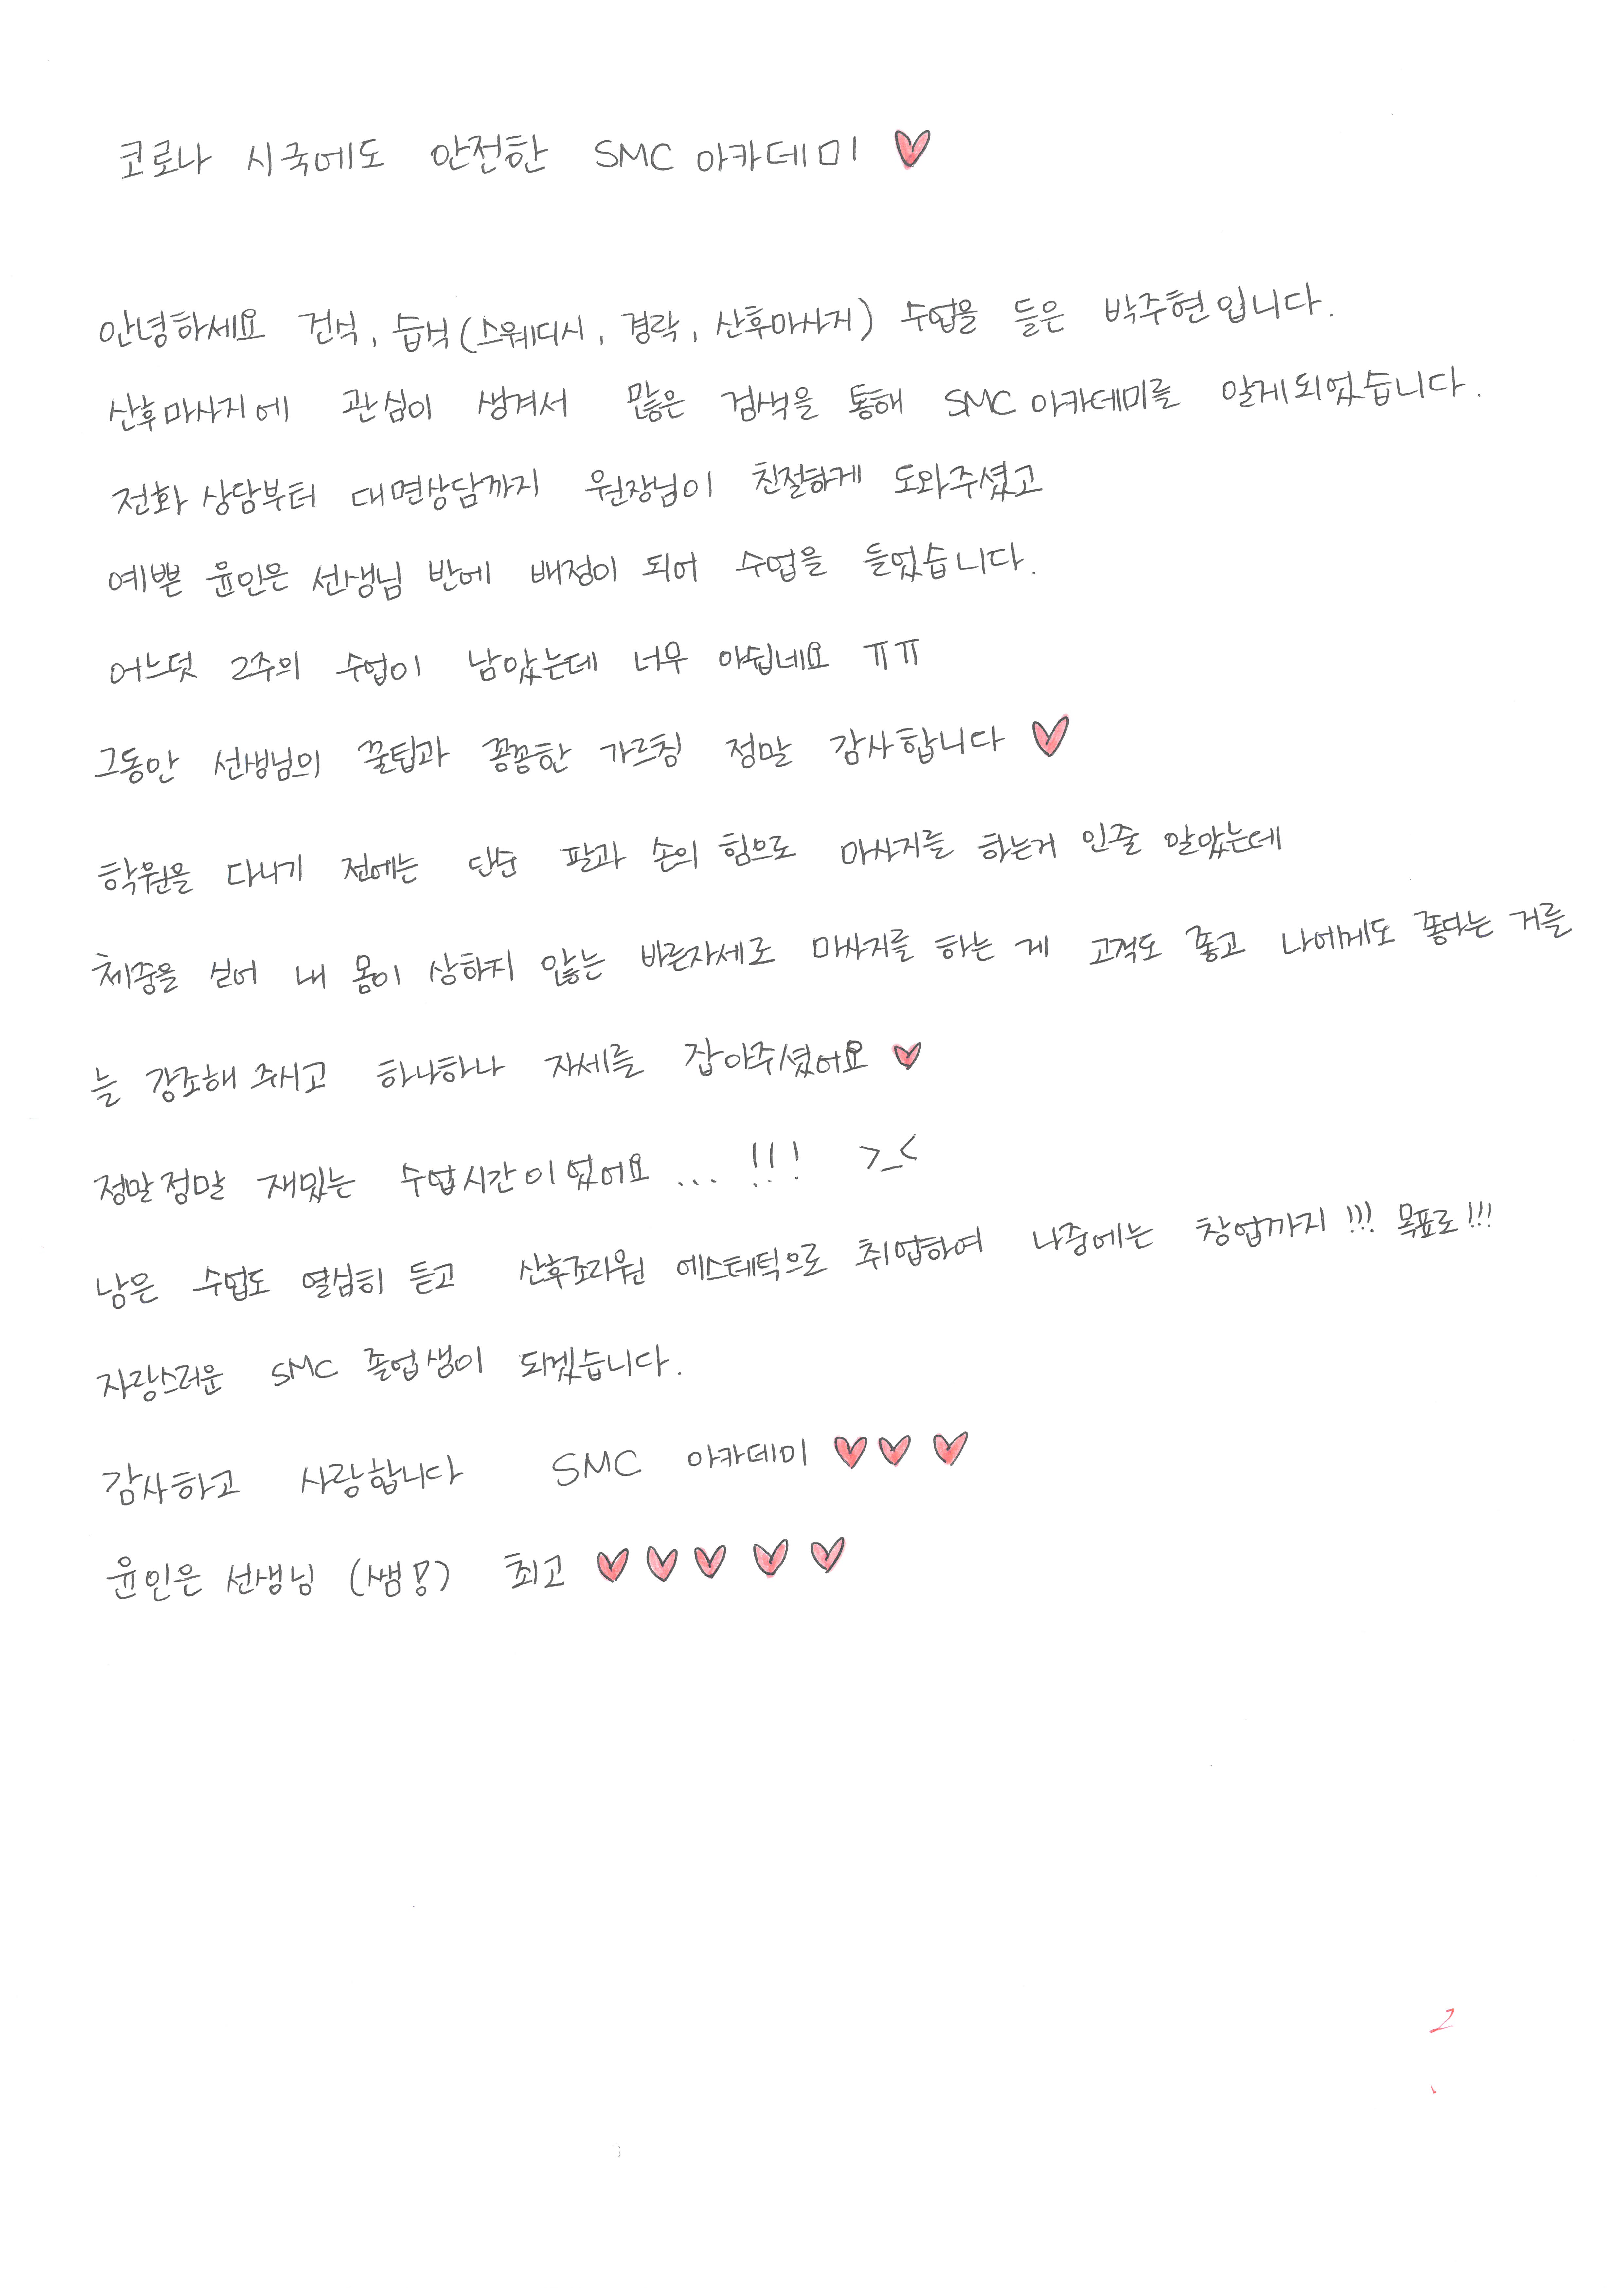 코로나 시국에도 안전한 SMC 아카데미 ♥
안녕하세요 건식, 습식(스웨디시, 경락, 산후마사지) 수업을 들은 박주현입니다.
산후마사지에 관심이 생겨서 많은 검색을 통해 SMC 아카데미를 알게되었습니다.
전화 상담부터 대면상담까지 원장님이 친절하게 도와주셨고
예쁜 윤인은 선생님 반에 배정이 되어 수업을 들었습니다.
어느덧 2주의 수업이 남았는데 너무 아쉽네요 ㅠㅠ
그동안 선생님의 꿀팁과 꼼꼼한 가르침 정말 감사합니다 ♥
학원을 다니기 전에는 단순 팔과 손의 힘으로 마사지를 하는거 인줄 알았는데
체중을 싣어 내 몸이 상하지 않는 바른자세로 마사지를 하는 게 고객도 좋고 나에게도 좋다는 거를
늘 강조해 주시고 하나하나 자세를 잡아주셨어요 ♥
정말정말 재밌는 수업시간이었어요 ... !!! >_<
남은 수업도 열심히 듣고 산후조리원 에스테틱으로 취업하여 나중에는 창업까지!!! 목표로!!!
자랑스러운 SMC 졸업생이 되겠습니다.
감사하고 사랑합니다 SMC 아카데미 ♥♥♥
윤인은 선생님 (쌤!) 최고 ♥♥♥♥♥
2